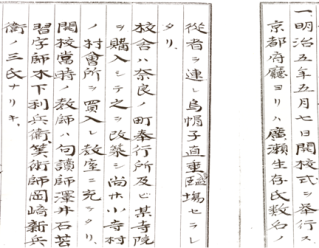 一明治五年五月七日開校式ヲ挙行ス
京都府廳ヨリハ廣瀬生存氏数名ノ
従者ヲ連レ烏帽子直垂臨場セラレ
タリ
校舎ハ奈良ノ町奉行所及ビ某寺院
ヲ購入シテ之ヲ改築尚ホ小寺村
ノ村會所ヲ買入レ教室ニ充テタリ
開校當時ノ教師ハ句讀師澤井石若
習字師木下利兵衛算術師岡﨑新兵
衛ノ三氏ナリキ